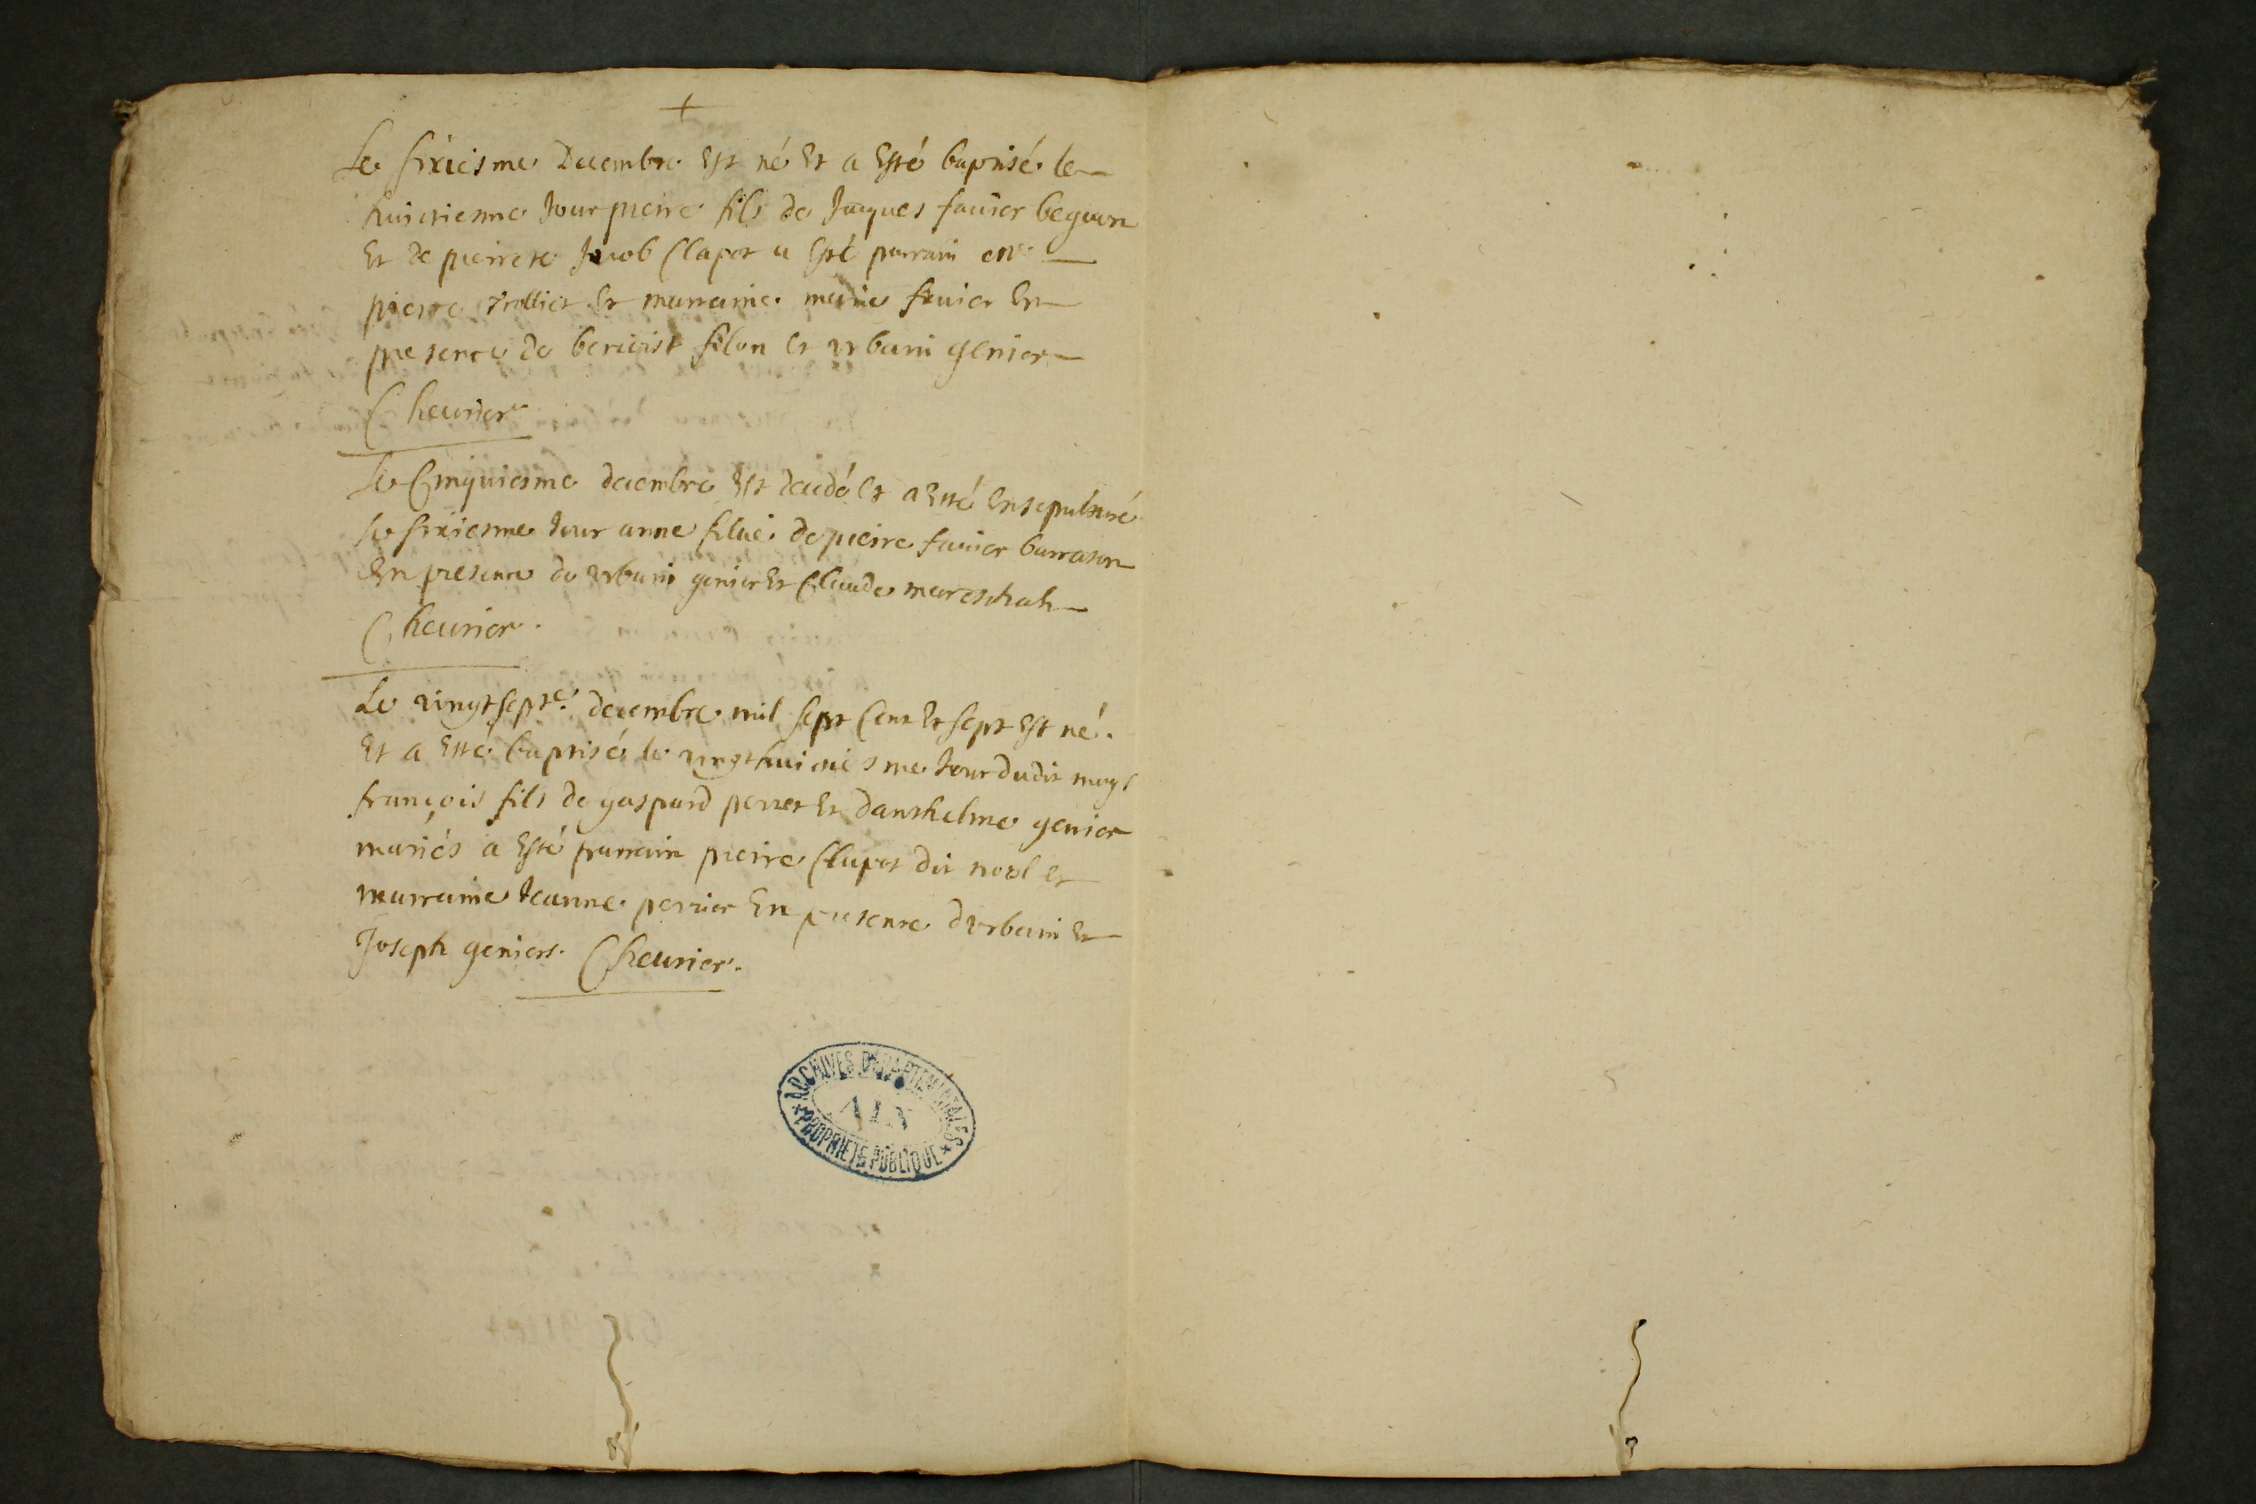 +
Le sixiesme Decembre est né et a esté baptisé le
huictiesme Jour pierre fils de Jaques fauier beguin
et de pierrete Jacob Clapot a esté parrain
pierre trollier et marraine marie fauier en
presence de benoist filon et urbain genier
Cheurier
Le Cinquiesme decembre est decedé et a esté ensepulturé
Le sixiesme Jour anne fillie de pierre fauier
en presence de urbain genier et Claude mareschal
Cheurier.
Le vingt septe. decembre mil sept Cent et sept est né.
et a esté baptisé le vingt huictiesme Jour dudit moys
françois fils de gaspard perret et danthelme genier
mariés a esté parrain pierre Clapot dit noel et
marraine Jeanne perrier en presence durbain et
Joseph geniers. Cheurier.
ARCHIVES DEPARTEMENTALES
AIN
* PROPRIETE PUBLIQUE *